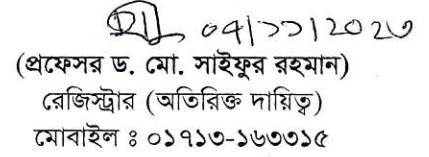 ০৫/১১/২০২৩
(প্রফেসর ড. মো. সাইফুর রহমান)
রেজিস্ট্রার (অতিরিক্ত দায়িত্ব)
মোবাইল ঃ ০১৭১৩-১৬৩৩১৫